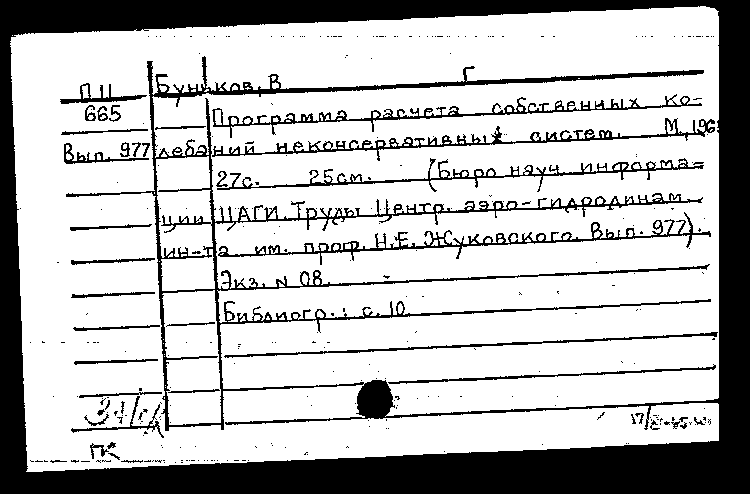 П 11 Буньков, В Г
665 Программа расчета собственных ко-
Вып. 977 лебаний неконсервативных систем. М, 196
27с. 25см. (Бюро науч. информа=
ции ЦАГИ. Труды Центр. аэро-гидродинам.
ин-та им. проф. Н.Е. Жуковского. Вып. 977).
Экз. N 08.
Библиогр.: с. 10
ГК